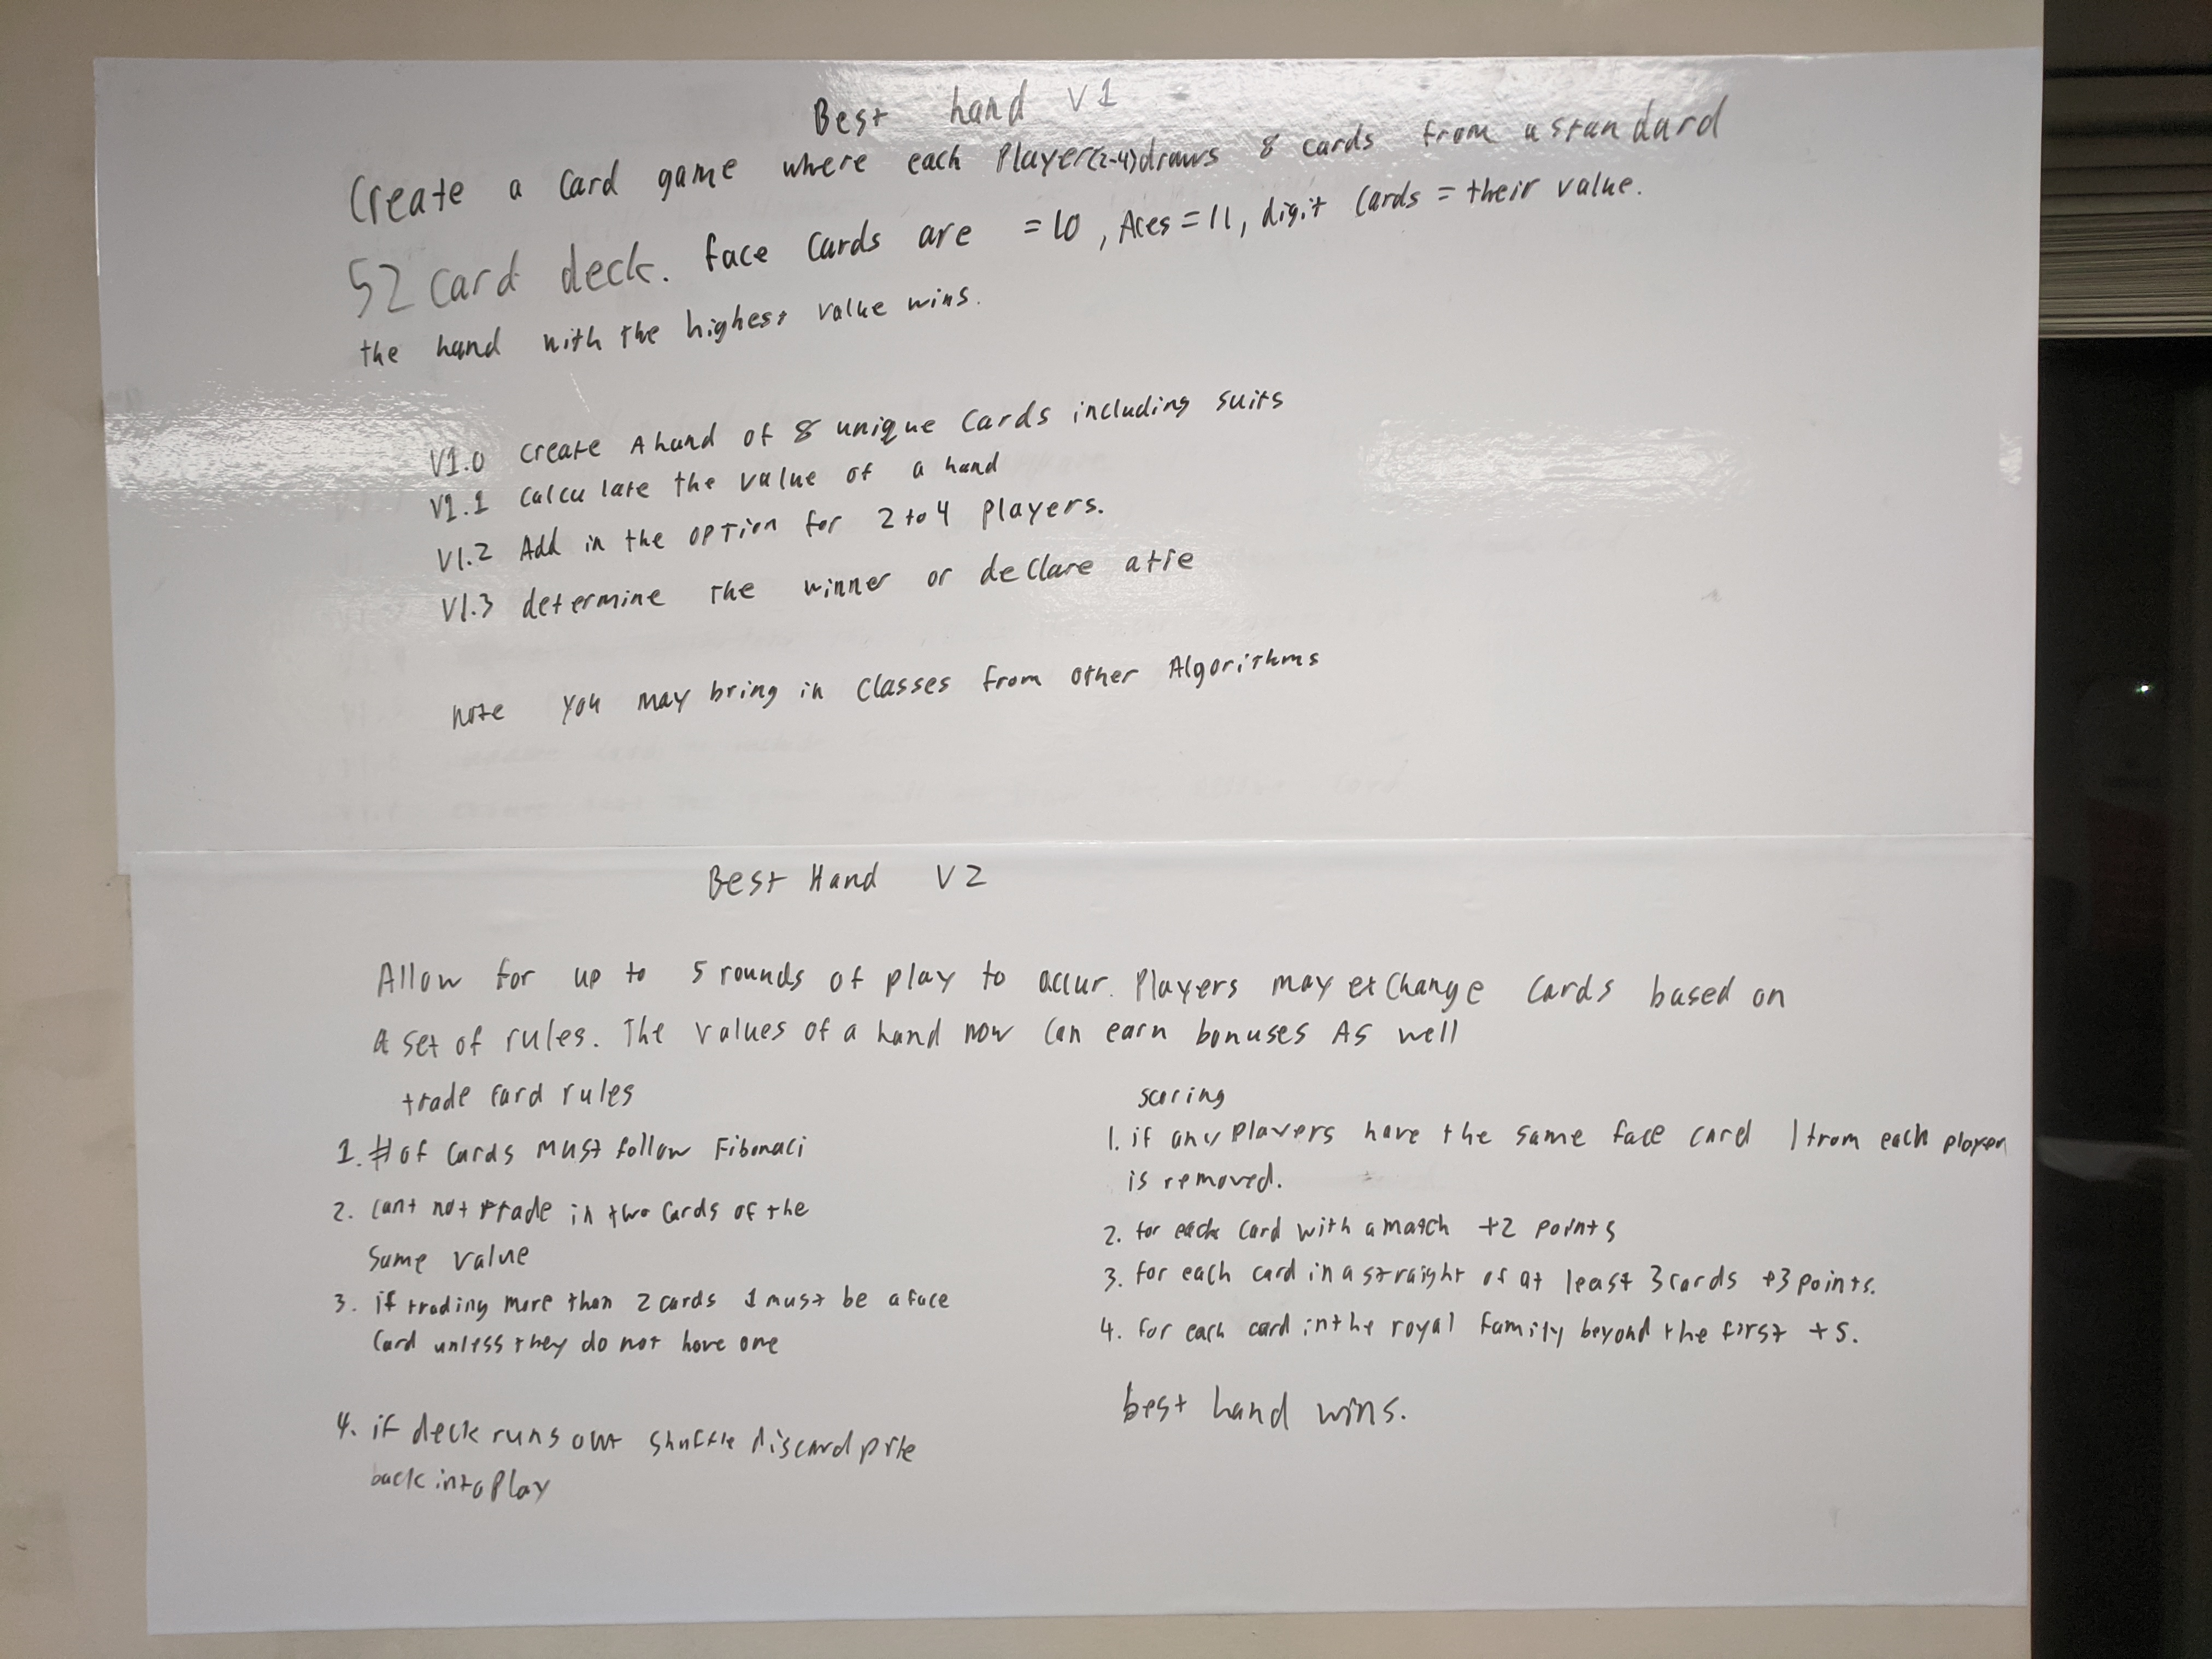 Best hand V1
Create a Card game where each Player(2-4)draws 8 cards from a standard
52 card deck. face cards are = 10, Aces = 11, digit Cards = their value.
the hand with the highest value wins.
V1.0 create A hand of 8 unique Cards including suits
V1.1 Calculate the value of a hand
V1.2 Add in the option for 2 to 4 players.
V1.3 determine the winner or declare a tie
note you may bring in Classes from other Algorithms
Best Hand V2
Allow for up to 5 rounds of play to occur. Players may exchange cards based on
A set of rules. The values of a hand now can earn bonuses As well
trade card rules
1. # of Cards must follow Fibonaci
2. cant not trade in two cards of the
same value
3. if trading more than 2 cards 1 must be a face
Card unless they do not have one
4. if deck runs out shuffle discard pile
back into Play
scoring
1. if any Players have the same face card 1 from each player
is removed.
2. for each card with a match +2 points
3. for each card in a straight of at least 3 cards +3 points.
4. for each card in the royal family beyond the first +5.
best hand wins.